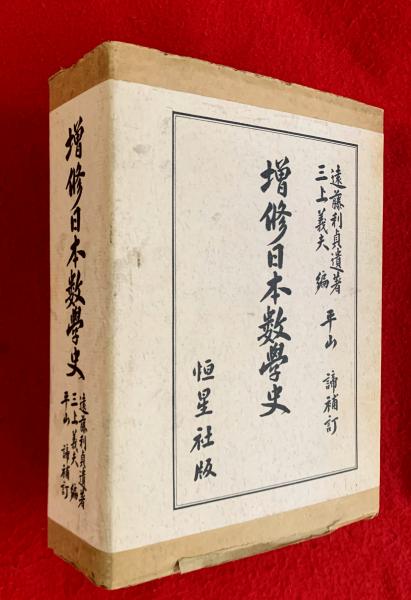 遠藤利貞遺著
三上義夫 編 平山 諦補訂
增修日本數學史
恒星社版
增修日本數學史
遠藤利貞遺著
三上義夫 編
平山 諦補訂